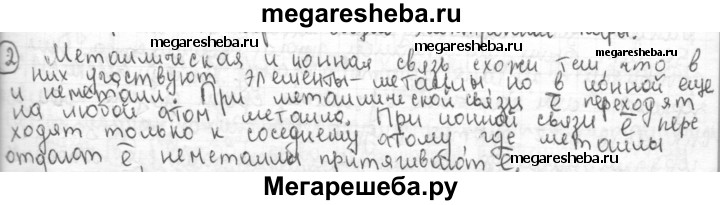 megaresheba.ru
2) Металлическая и ионная связь схожи тем, что в
них участвуют элементы-металлы, но в ионной еще
и неметалл. При металлической связи ē переходят
на любой атом металла. При ионной связи ē пере
ходят только к соседнему атому, где металлы
отдают ē, неметаллы притягивают ē.
megaresheba.ru
megaresheba.ru
megaresheba.ru
megaresheba.ru
megaresheba.ru
megaresheba.ru
megaresheba.ru
megaresheba.ru
Мегарешеба.ру